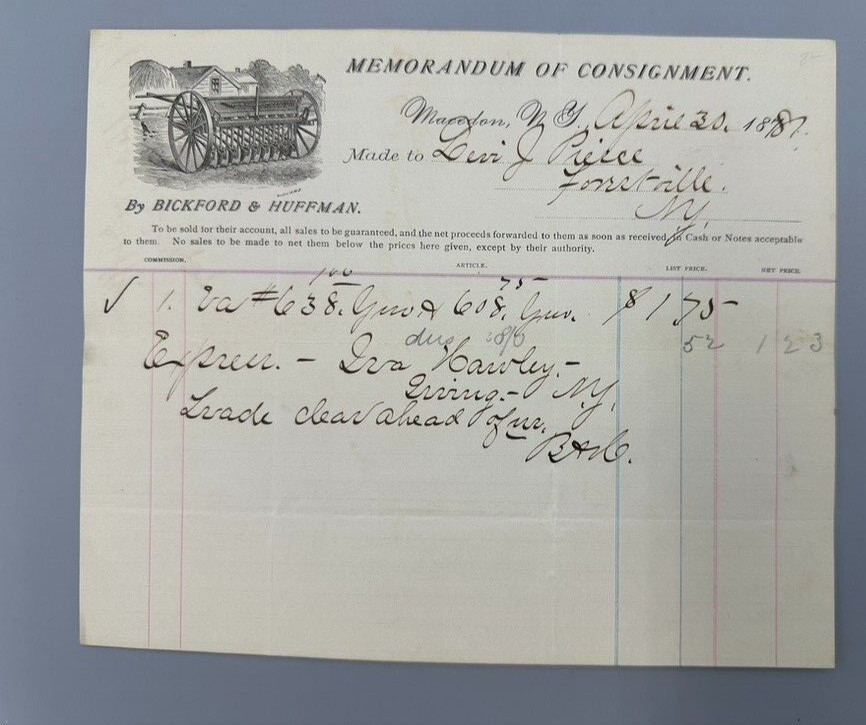 MEMORANDUM OF CONSIGNMENT.
Macedon, N. Y., April 30, 1887.
Made to Levi J Pierce
Forestville.
N.Y.
By BICKFORD & HUFFMAN.
To be sold for their account, all sales to be guaranteed, and the net proceeds forwarded to them as soon as received, in Cash or Notes acceptable
to them. No sales to be made to net them below the prices here given, except by their authority.
COMMISSION. ARTICLE. LIST PRICE. NET PRICE.
100 75
✓ 1. Ea # 638. & 608. $ 1 75
52 1 23
Express. - Ira Hawley. -
Irving. - N.Y.
Trade clear ahead of us.
B & H.